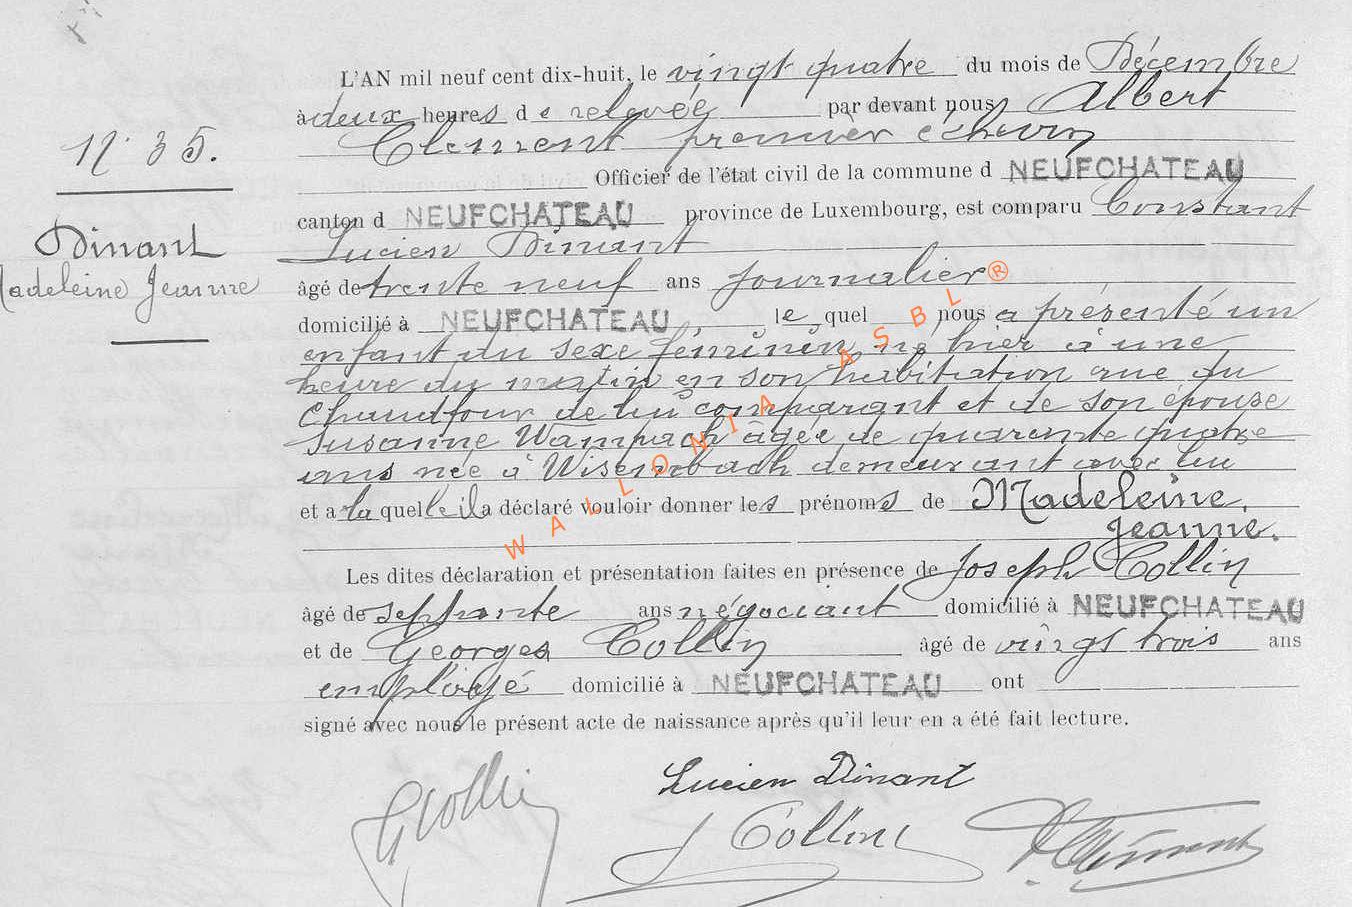 L'AN mil neuf cent dix-huit, le vingt quatre du mois de Décembre
à deux heures de relevée par devant nous Albert
Clement premier échevin
Officier de l'état civil de la commune d NEUFCHATEAU
canton d NEUFCHATEAU province de Luxembourg, est comparu Constant
Lucien Dinant
âgé de trente neuf ans journalier
domicilié à NEUFCHATEAU, lequel nous a présenté un
enfant du sexe féminin né hier à une
heure du matin en son habitation rue du
Chaudfour de lui comparant et de son épouse
Susanne Wampach âgée de quarante quatre
ans née à Wisembach demeurant avec lui
et a laquelle il a déclaré vouloir donner les prénoms de Madeleine
Jeanne.
Les dites déclaration et présentation faites en présence de Joseph Collin
âgé de septante ans négociant domicilié à NEUFCHATEAU
et de Georges Collin âgé de vingt trois ans
employé domicilié à NEUFCHATEAU ont
signé avec nous le présent acte de naissance après qu'il leur en a été fait lecture.
N° 35.
Dinant
Madeleine Jeanne
WALLONIA ASBL ®
Lucien Dinant
G Collin
J Collin
A Clément